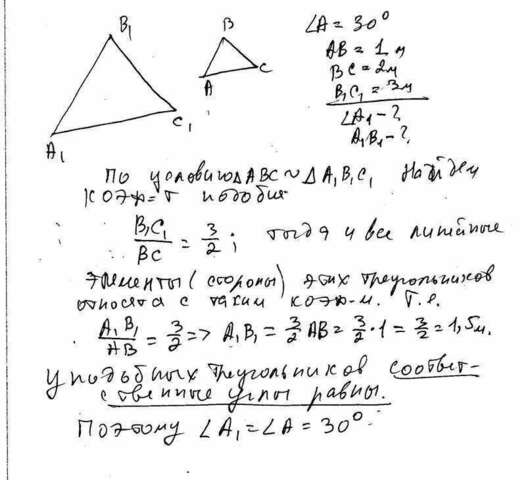 B₁
B
C
A
C₁
A₁
∠A = 30°
AB = 1 м
BC = 2м
B₁C₁ = 3м
∠A₁ - ?
A₁B₁ - ?
По условию ΔABC ~ ΔA₁B₁C₁ Найдем
коэф-т подобия
B₁C₁/BC = 3/2; тогда и все линейные
элементы (стороны) этих треугольников
относятся с таким коэф-м. Т.е.
A₁B₁/AB = 3/2 => A₁B₁ = 3/2 AB = 3/2 · 1 = 3/2 = 1,5м.
У подобных треугольников соответ-
ственные углы равны.
Поэтому ∠A₁ = ∠A = 30°.